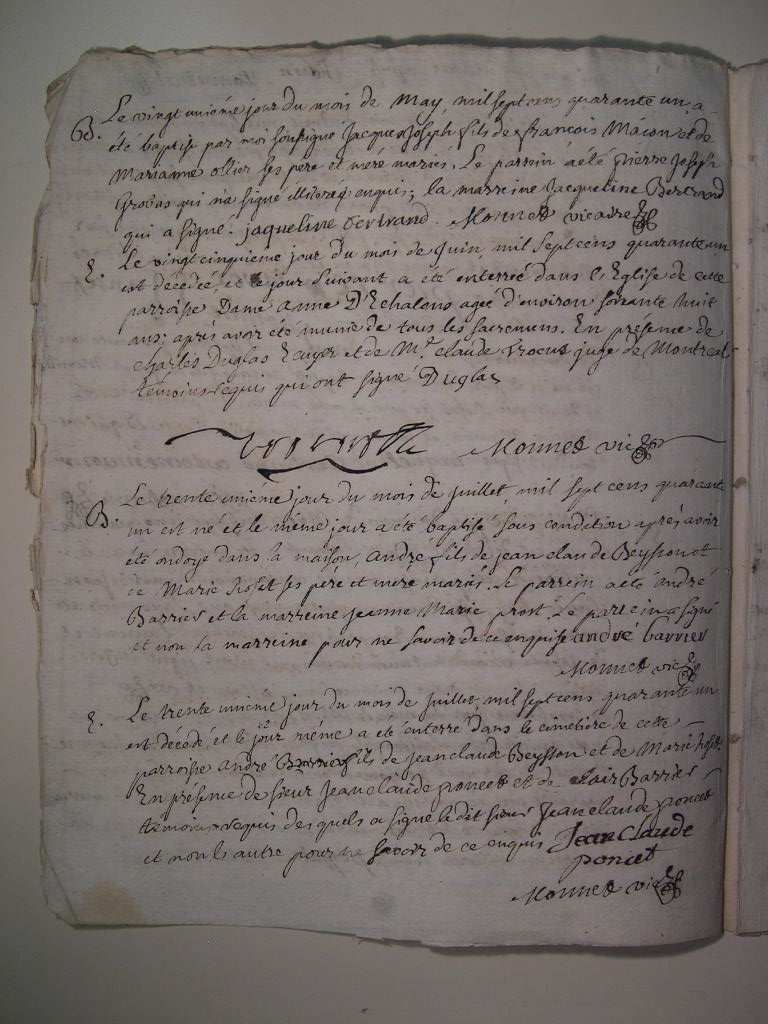 B. Le vingt unième jour du mois de May, mil sept cens quarante un, a
été baptisé par moi soussigné Jacque Joseph fils de françois Macon et de
Marianne ollier ses pere et mere mariés. Le parrein a été pierre Joseph
qui n'a signé enquis; la marreine Jacqueline Bertrand
qui a signé. jaqueline bertrand. Monnet vicaire
E. Le vingt cinquieme jour du mois de Juin, mil sept cens quarante un
est decedée, et le jour suivant a été enterrée dans l'Eglise de cette
parroisse Dame anne D'Echalons agée d'environ soixante huit
ans; après avoir été munie de tous les sacremens. En présence de
charles Duglas Ecuyer et de Mr. claude juge de Montreal
témoins requis qui ont signé Duglas
Monnet vic
B. Le trente unième jour du mois de juillet, mil sept cens quarante
un est né et le même jour a été baptisé sous condition après avoir
été ondoyé dans la maison, andré fils de jean claude Beysson et
de Marie Roset ses pere et mere mariés. Le parrein a été andré
Barrier et la marreine jeanne Marie prost. Le parrein a signé
et non la marreine pour ne savoir de ce enquise andré barrier
Monnet vic
E. Le trente unième jour du mois de juillet, mil sept cens quarante un
est décédé, et le jour même a été enterré dans le cimetière de cette
parroisse andré fils de jean claude Beysson et de Marie Roset.
En présence de sieur Jean claude poncet et de Barrier
témoins requis desquels a signé le dit sieur Jean claude poncet
et non l'autre pour ne savoir de ce enquis Jean Claude
poncet
Monnet vic